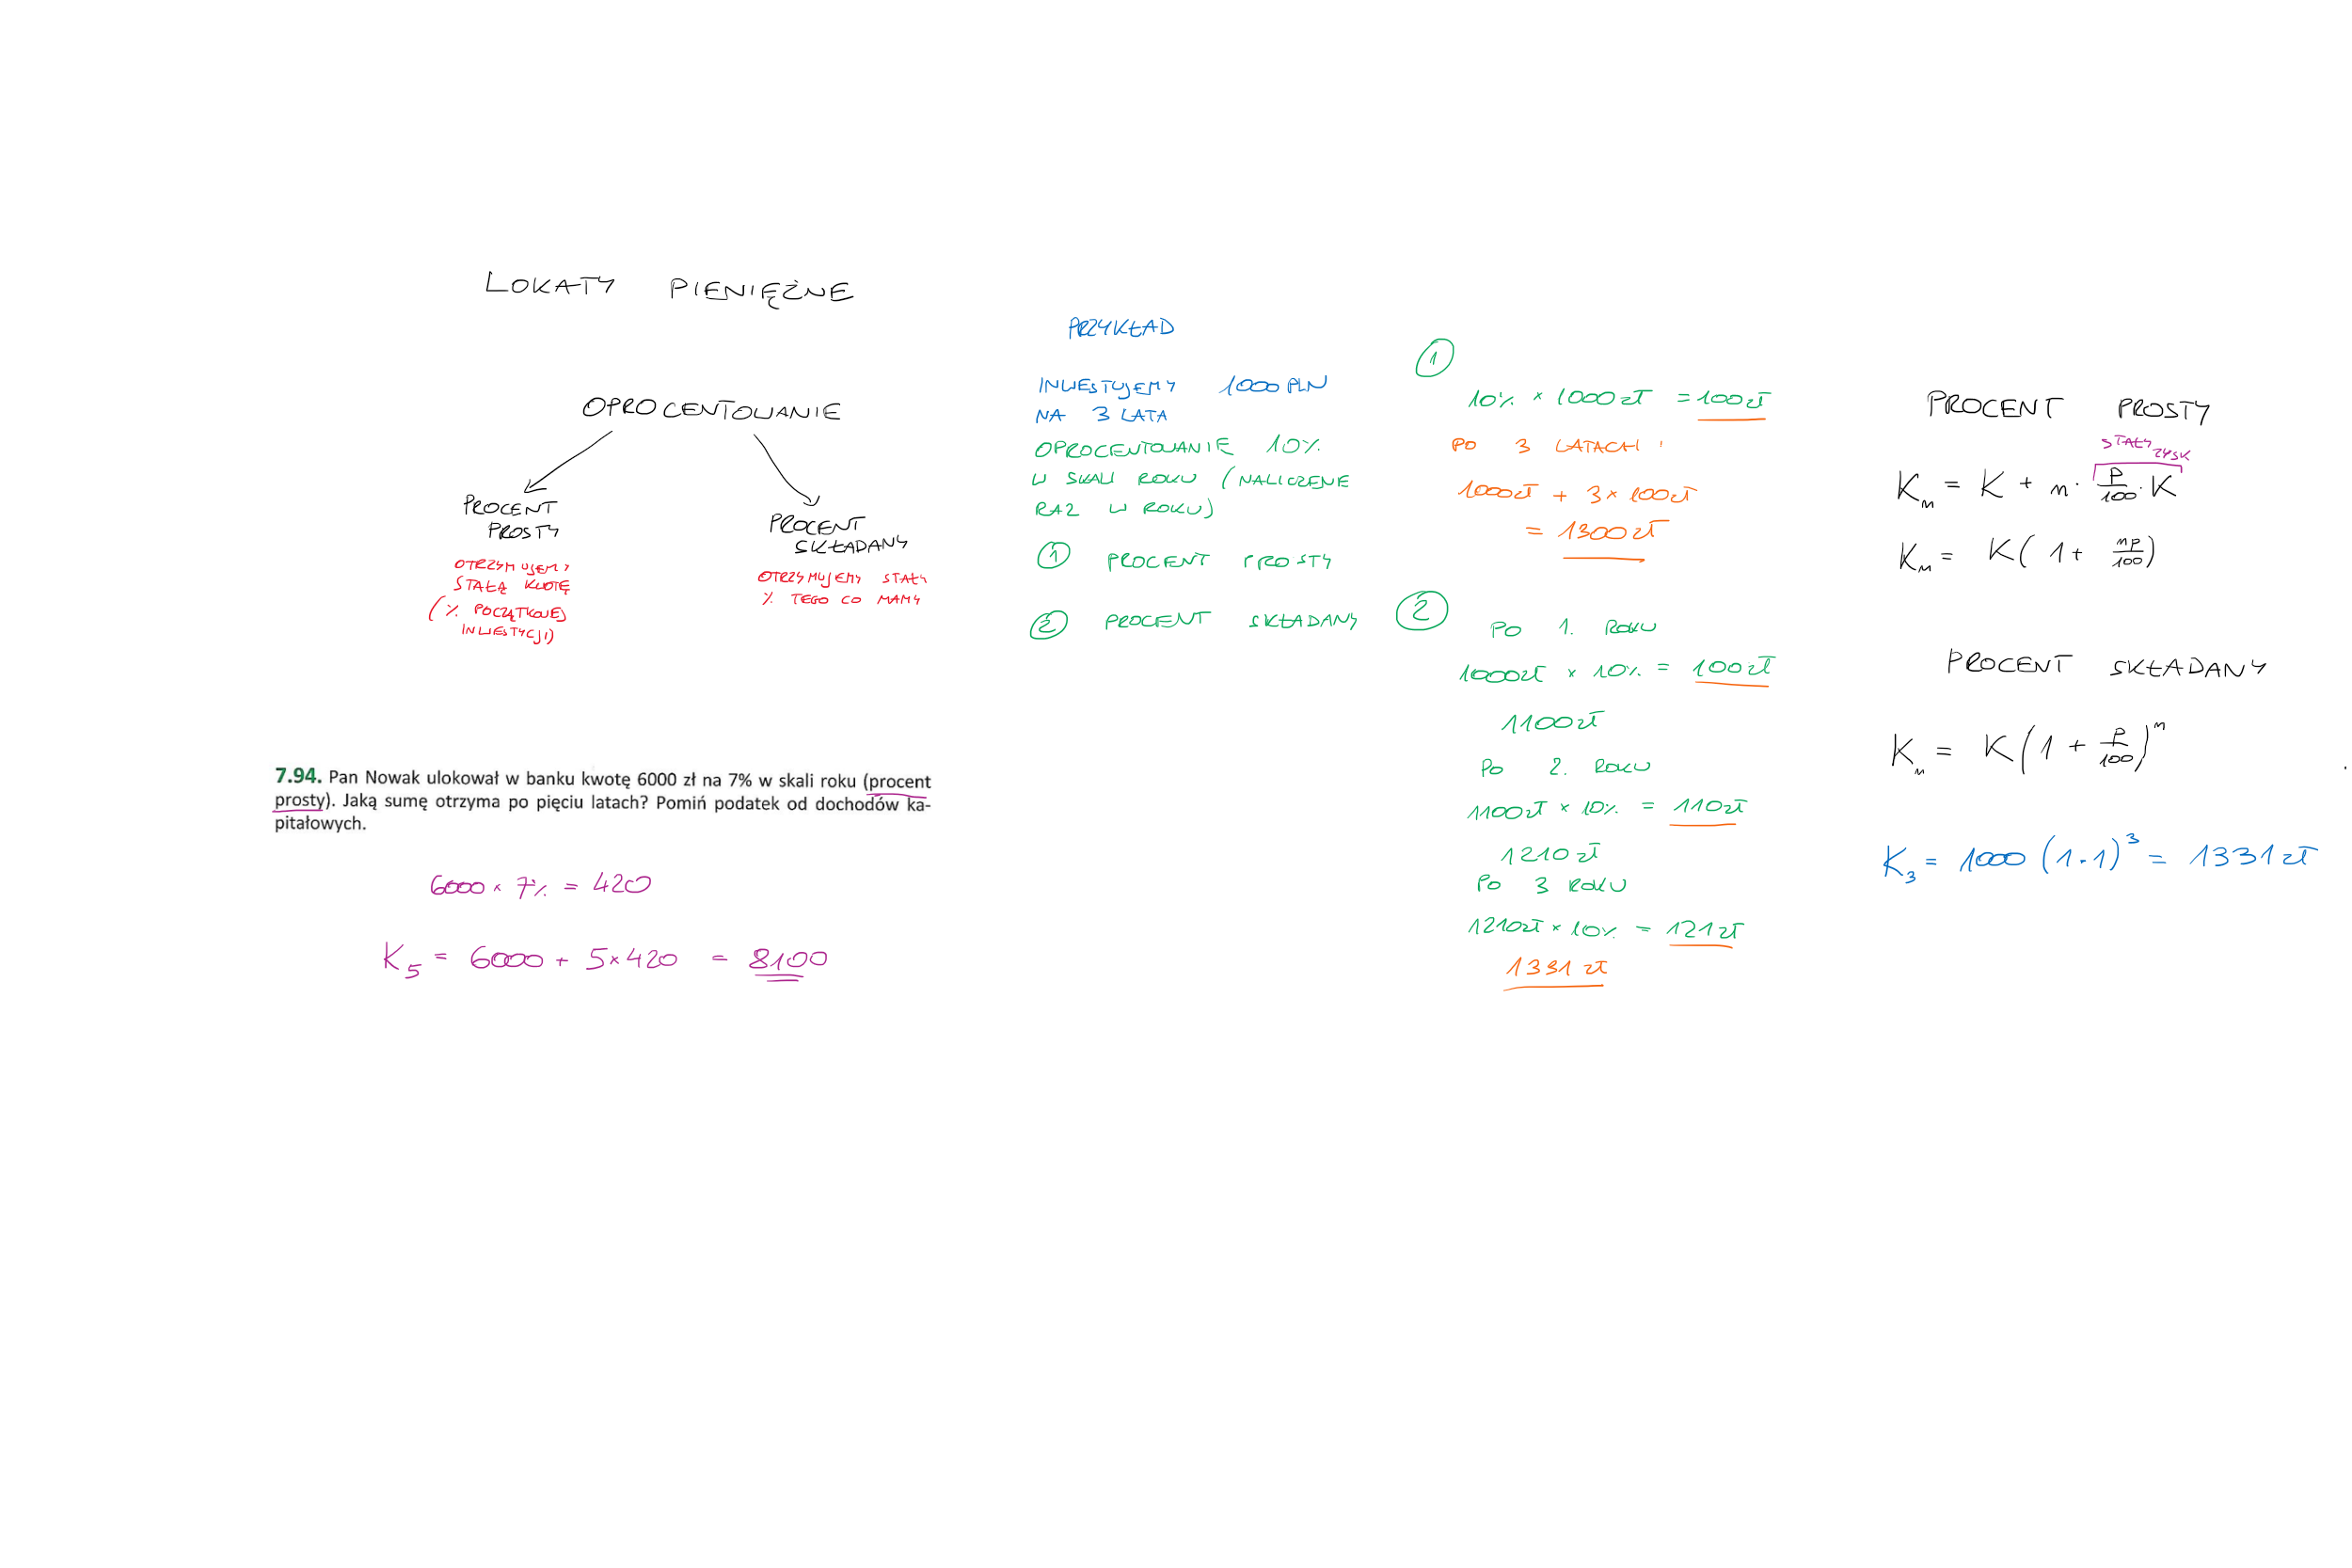 LOKATY PIENIĘŻNE
OPROCENTOWANIE
PROCENT
PROSTY
OTRZYMUJEMY
STAŁĄ KWOTĘ
(% POCZĄTKOWEJ
INWESTYCJI)
PROCENT
SKŁADANY
OTRZYMUJEMY STAŁY
% TEGO CO MAMY
7.94. Pan Nowak ulokował w banku kwotę 6000 zł na 7% w skali roku (procent
prosty). Jaką sumę otrzyma po pięciu latach? Pomiń podatek od dochodów ka-
pitałowych.
6000 × 7% = 420
K₅ = 6000 + 5×420 = 8100
PRZYKŁAD
INWESTUJEMY 1000 PLN
NA 3 LATA
OPROCENTOWANIE 10%
W SKALI ROKU (NALICZENE
RAZ W ROKU)
① PROCENT PROSTY
② PROCENT SKŁADANY
①
10% × 1000 zł = 100 zł
PO 3 LATACH :
1000 zł + 3 × 100 zł
= 1300 zł
②
PO 1. ROKU
1000 zł × 10% = 100 zł
1100 zł
PO 2. ROKU
1100 zł × 10% = 110 zł
1210 zł
PO 3 ROKU
1210 zł × 10% = 121 zł
1331 zł
PROCENT PROSTY
STAŁY ZYSK
Kₙ = K + n · p/100 · K
Kₙ = K( 1 + np/100 )
PROCENT SKŁADANY
Kₙ = K( 1 + p/100 )ⁿ
K₃ = 1000 (1.1)³ = 1331 zł